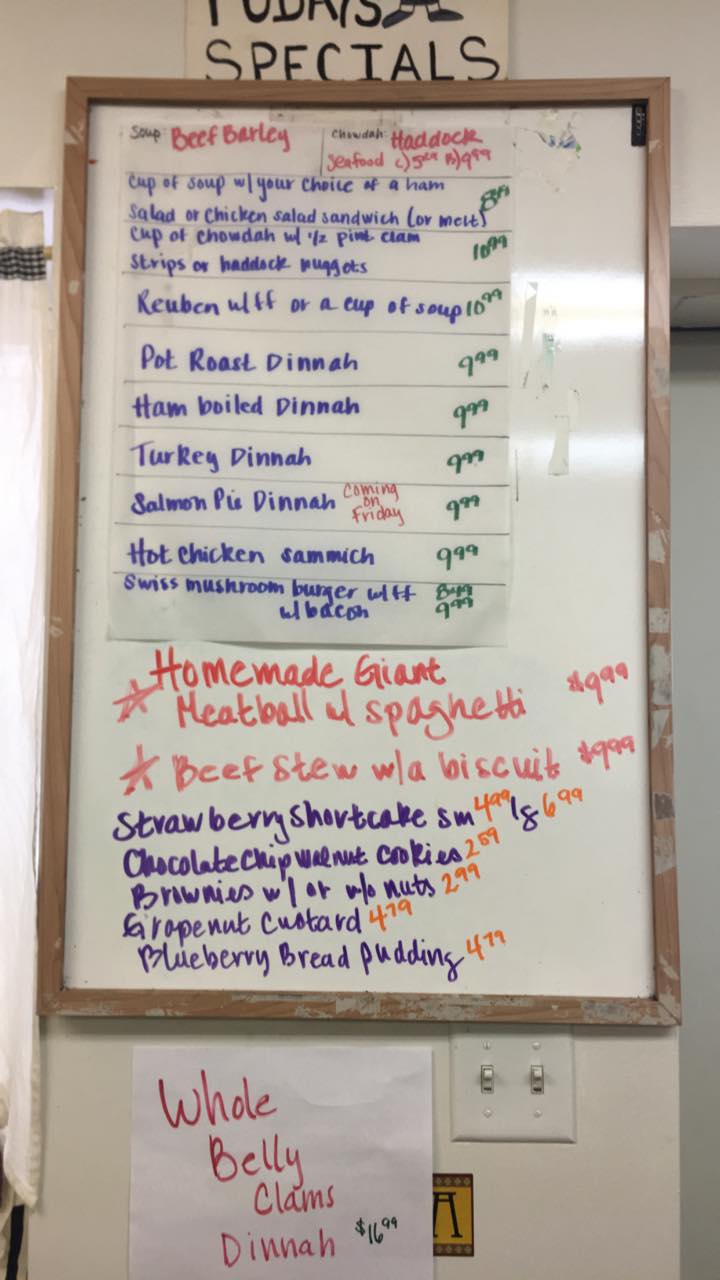 TODAYS
SPECIALS
Soup: Beef Barley
Chowdah: Haddock
Seafood c) 5.29 B) 9.99
Cup of soup w/ your choice of a ham
Salad or chicken salad sandwich (or melt)
Cup of chowdah w/ 1/2 pint clam 10.99
Strips or haddock nuggets
Reuben w/ff or a cup of soup 10.99
Pot Roast Dinnah 9.99
Ham boiled Dinnah 9.99
Turkey Dinnah 9.99
Salmon Pie Dinnah 9.99
Coming
on
Friday
Hot chicken sammich 9.99
Swiss mushroom burger w/ff 8.49
w/bacon 9.99
Homemade Giant
Meatball w/ spaghetti $9.99
Beef Stew w/a biscuit $9.99
Strawberry Shortcake sm 4.99 lg 6.99
Chocolate Chip Walnut cookies 2.59
Brownies w/ or w/o nuts 2.99
Grapenut Custard 4.79
Blueberry Bread pudding 4.79
Whole
Belly
Clams
Dinnah $16.99
A